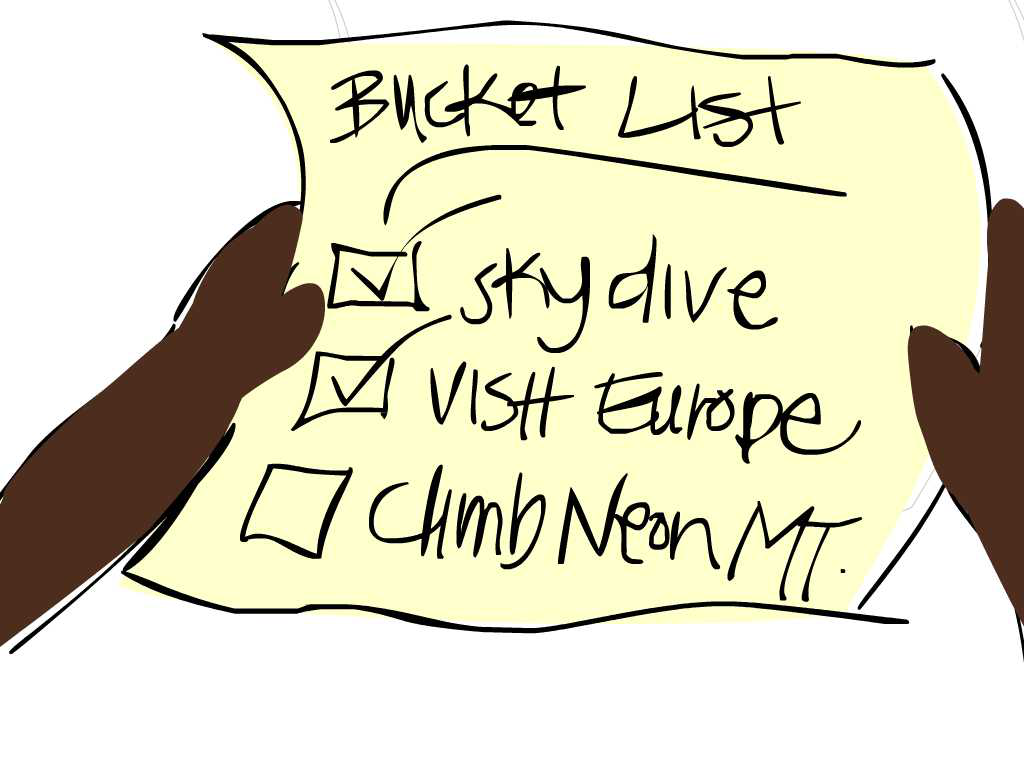 Bucket List
skydive
Visit Europe
Climb Neon MT.